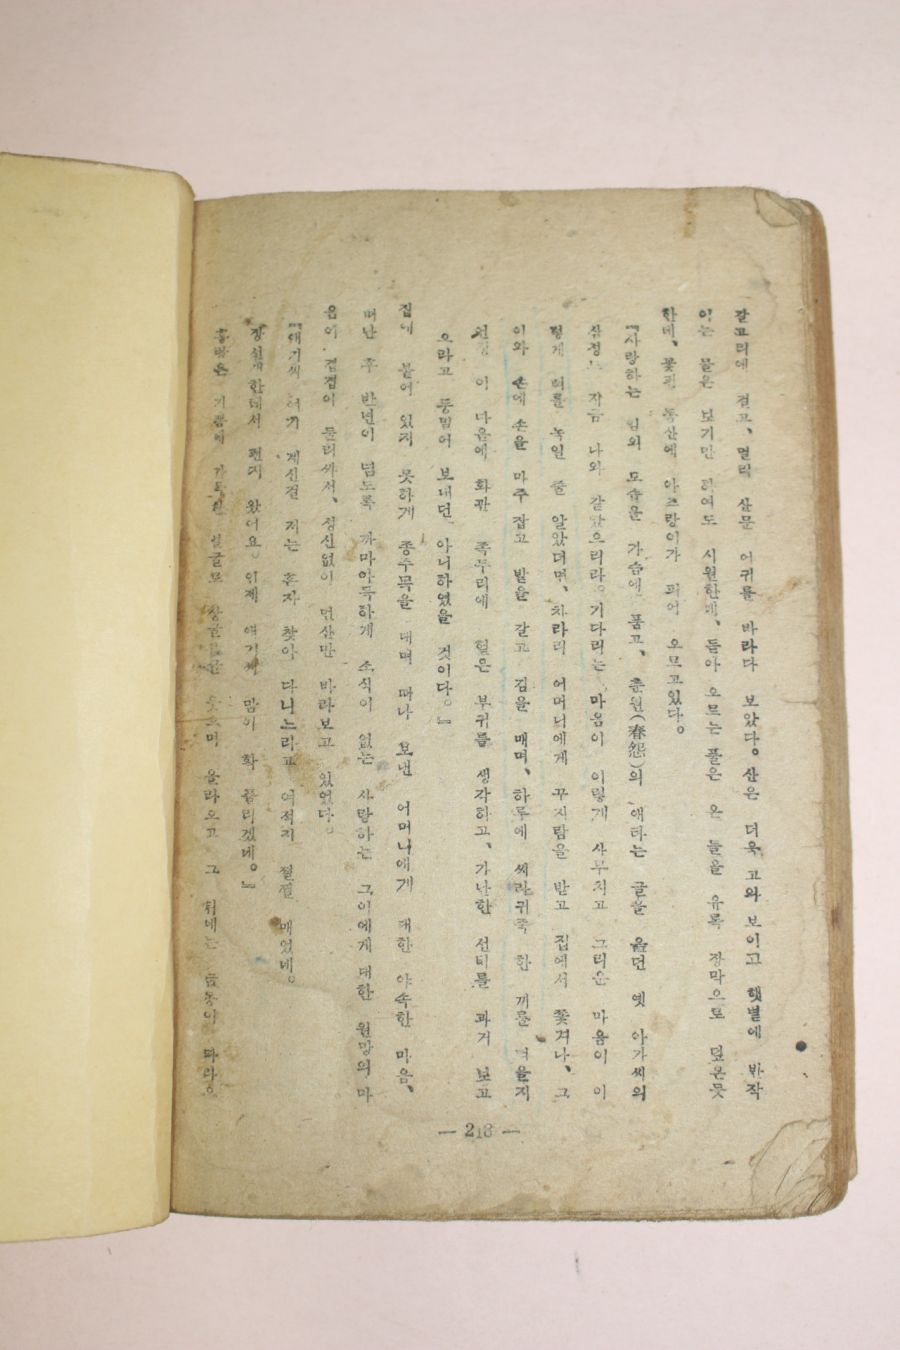 갈고리에 걸고、멀리 산문 어귀를 바라다 보았다。산은 더욱 고와 보이고 햇볕에 반작
이는 물은 보기만 하여도 시원한데、돌아 오르는 풀은 온 들을 유록 장막으로 덮은듯
한데、꽃핀 동산에 아즈랑이가 피어 오르고있다。
『사랑하는 님의 모습을 가슴에 품고、춘원(春怨)의 애타는 글을 읊던 옛 아가씨의
심정도 지금 나와 같았으리라。기다리는 마음이 이렇게 사무치고 그리운 마음이 이
렇게 뼈를 녹일 줄 알았더면、차라리 어머니에게 꾸지람을 받고 집에서 쫓겨나、그
이와 손에 손을 마주 잡고 밭을 갈고 김을 매며、하루에 씨라귀죽 한 끼를 먹을지
언정 이 다음에 화관 족두리에 얽은 부귀를 생각하고、가난한 선비를 과거 보고
오라고 등밀어 보내던 아니하였을 것이다。』
집에 붙어 있지 못하게 종주목을 대며 떠나 보낸 어머니에게 대한 야속한 마음、
떠난 후 반년이 넘도록 까마아득하게 소식이 없는 사랑하는 그이에게 대한 원망의 마
음이 겹겹이 둘러싸서、정신없이 먼산만 바라보고 있었다。
『애기씨 여기 계신걸 저는 혼자 찾아 다니느라고 여적지 쩔쩔 매었네。
장신에한테서 편지 왔어요。인제 애기씨 맘이 확 풀리겠네。』
기쁨에 가득찬 얼굴로 상글 웃으며 올라오고 그 뒤에는 동이 따라。
— 218 —